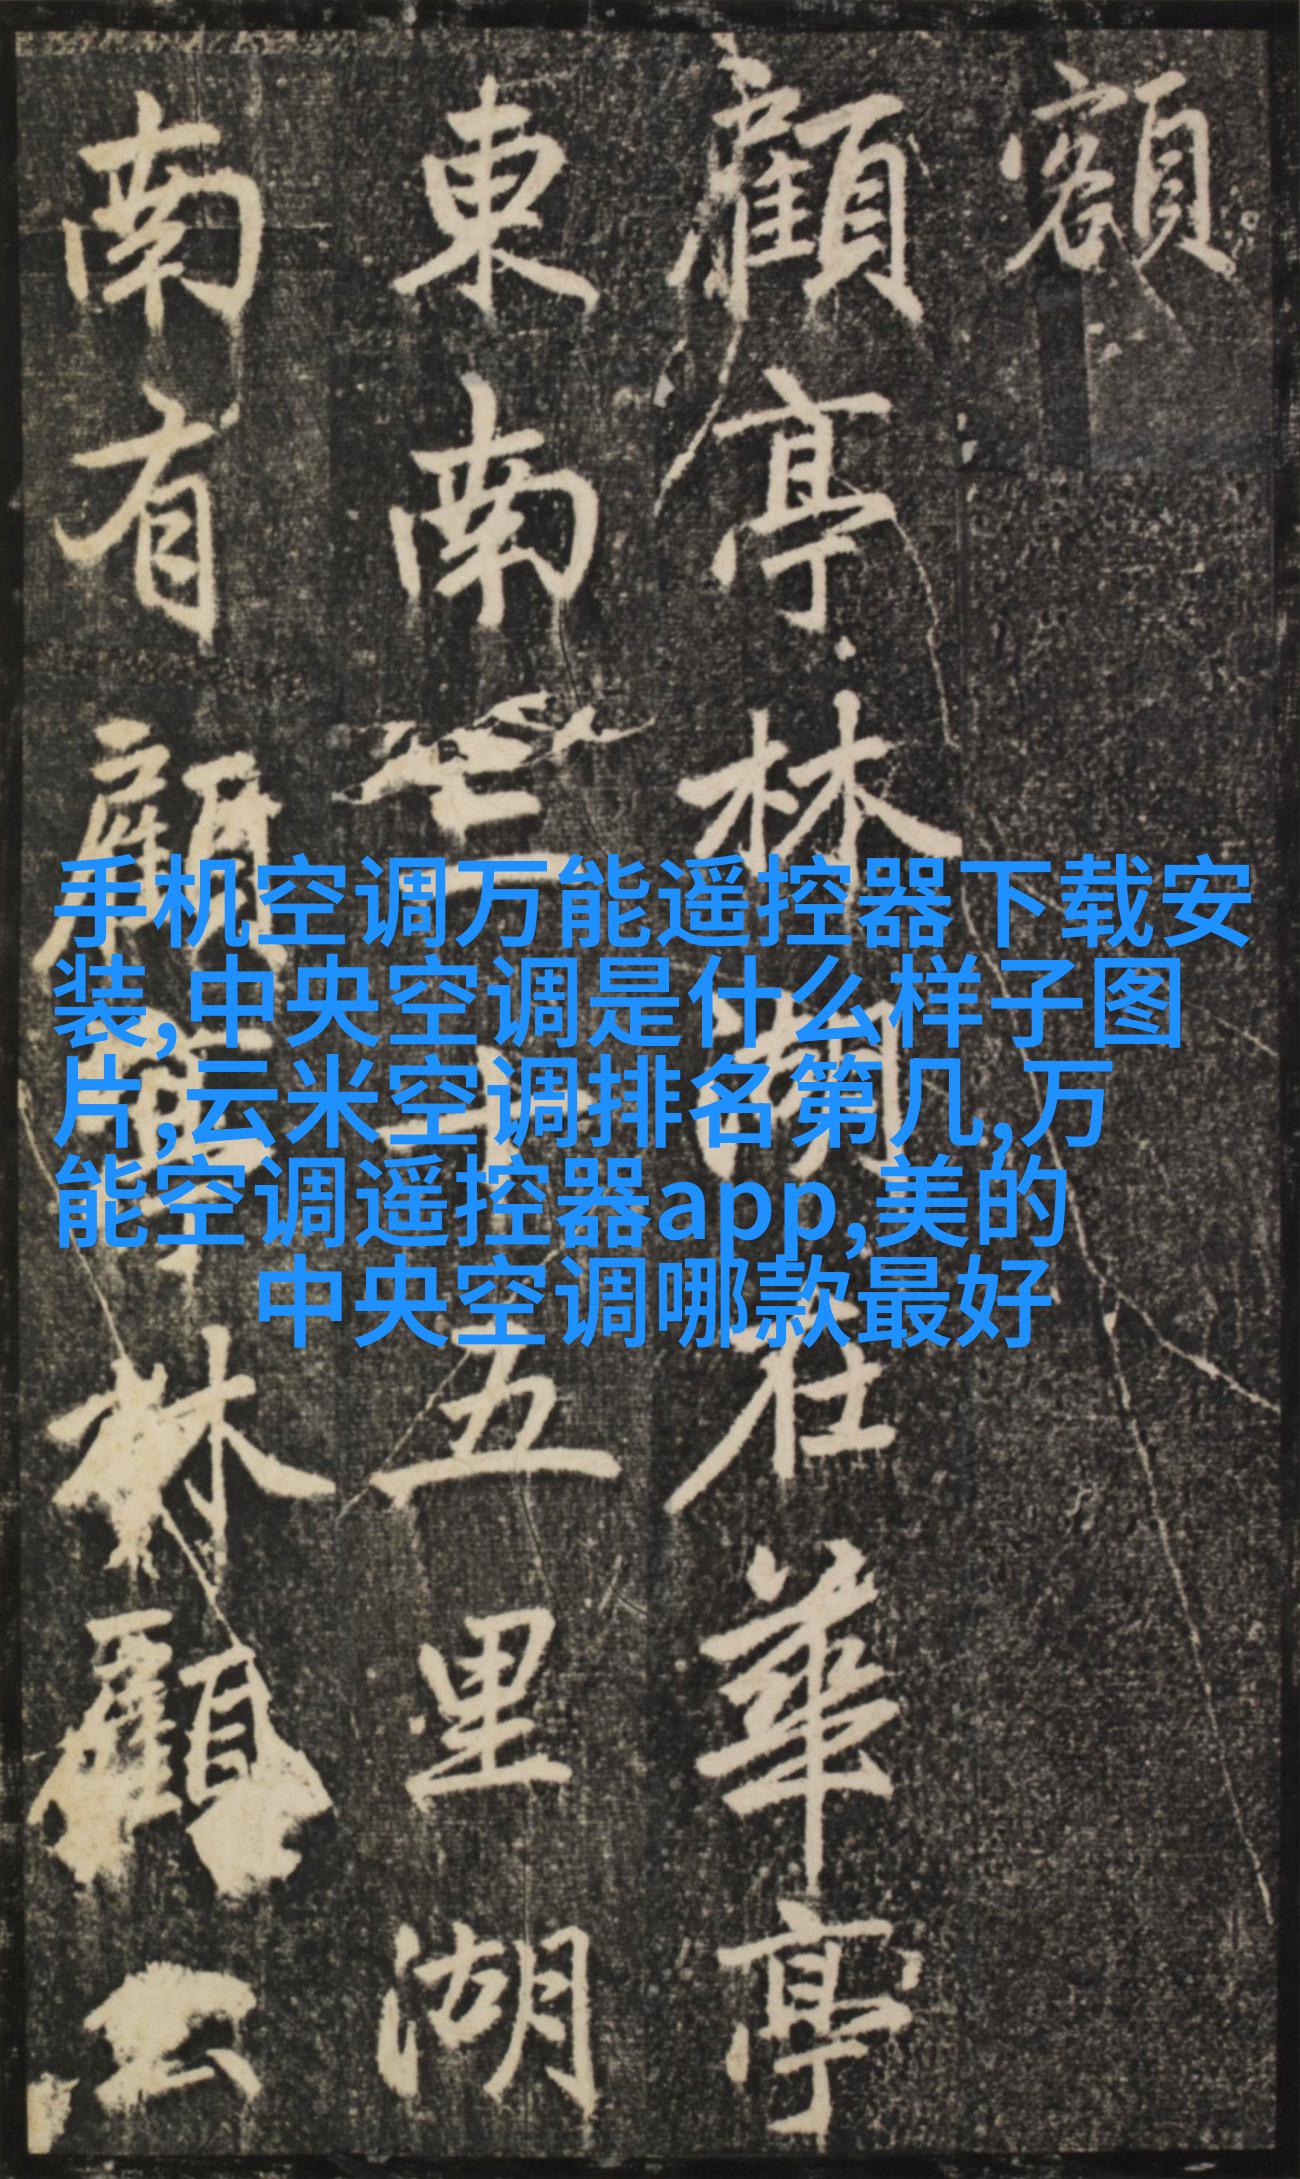 額
顧亭林湖在華亭
東南三十五里湖
南有顧亭林顧公
手机空调万能遥控器下载安
装,中央空调是什么样子图
片,云米空调排名第几,万
能空调遥控器app,美的
中央空调哪款最好